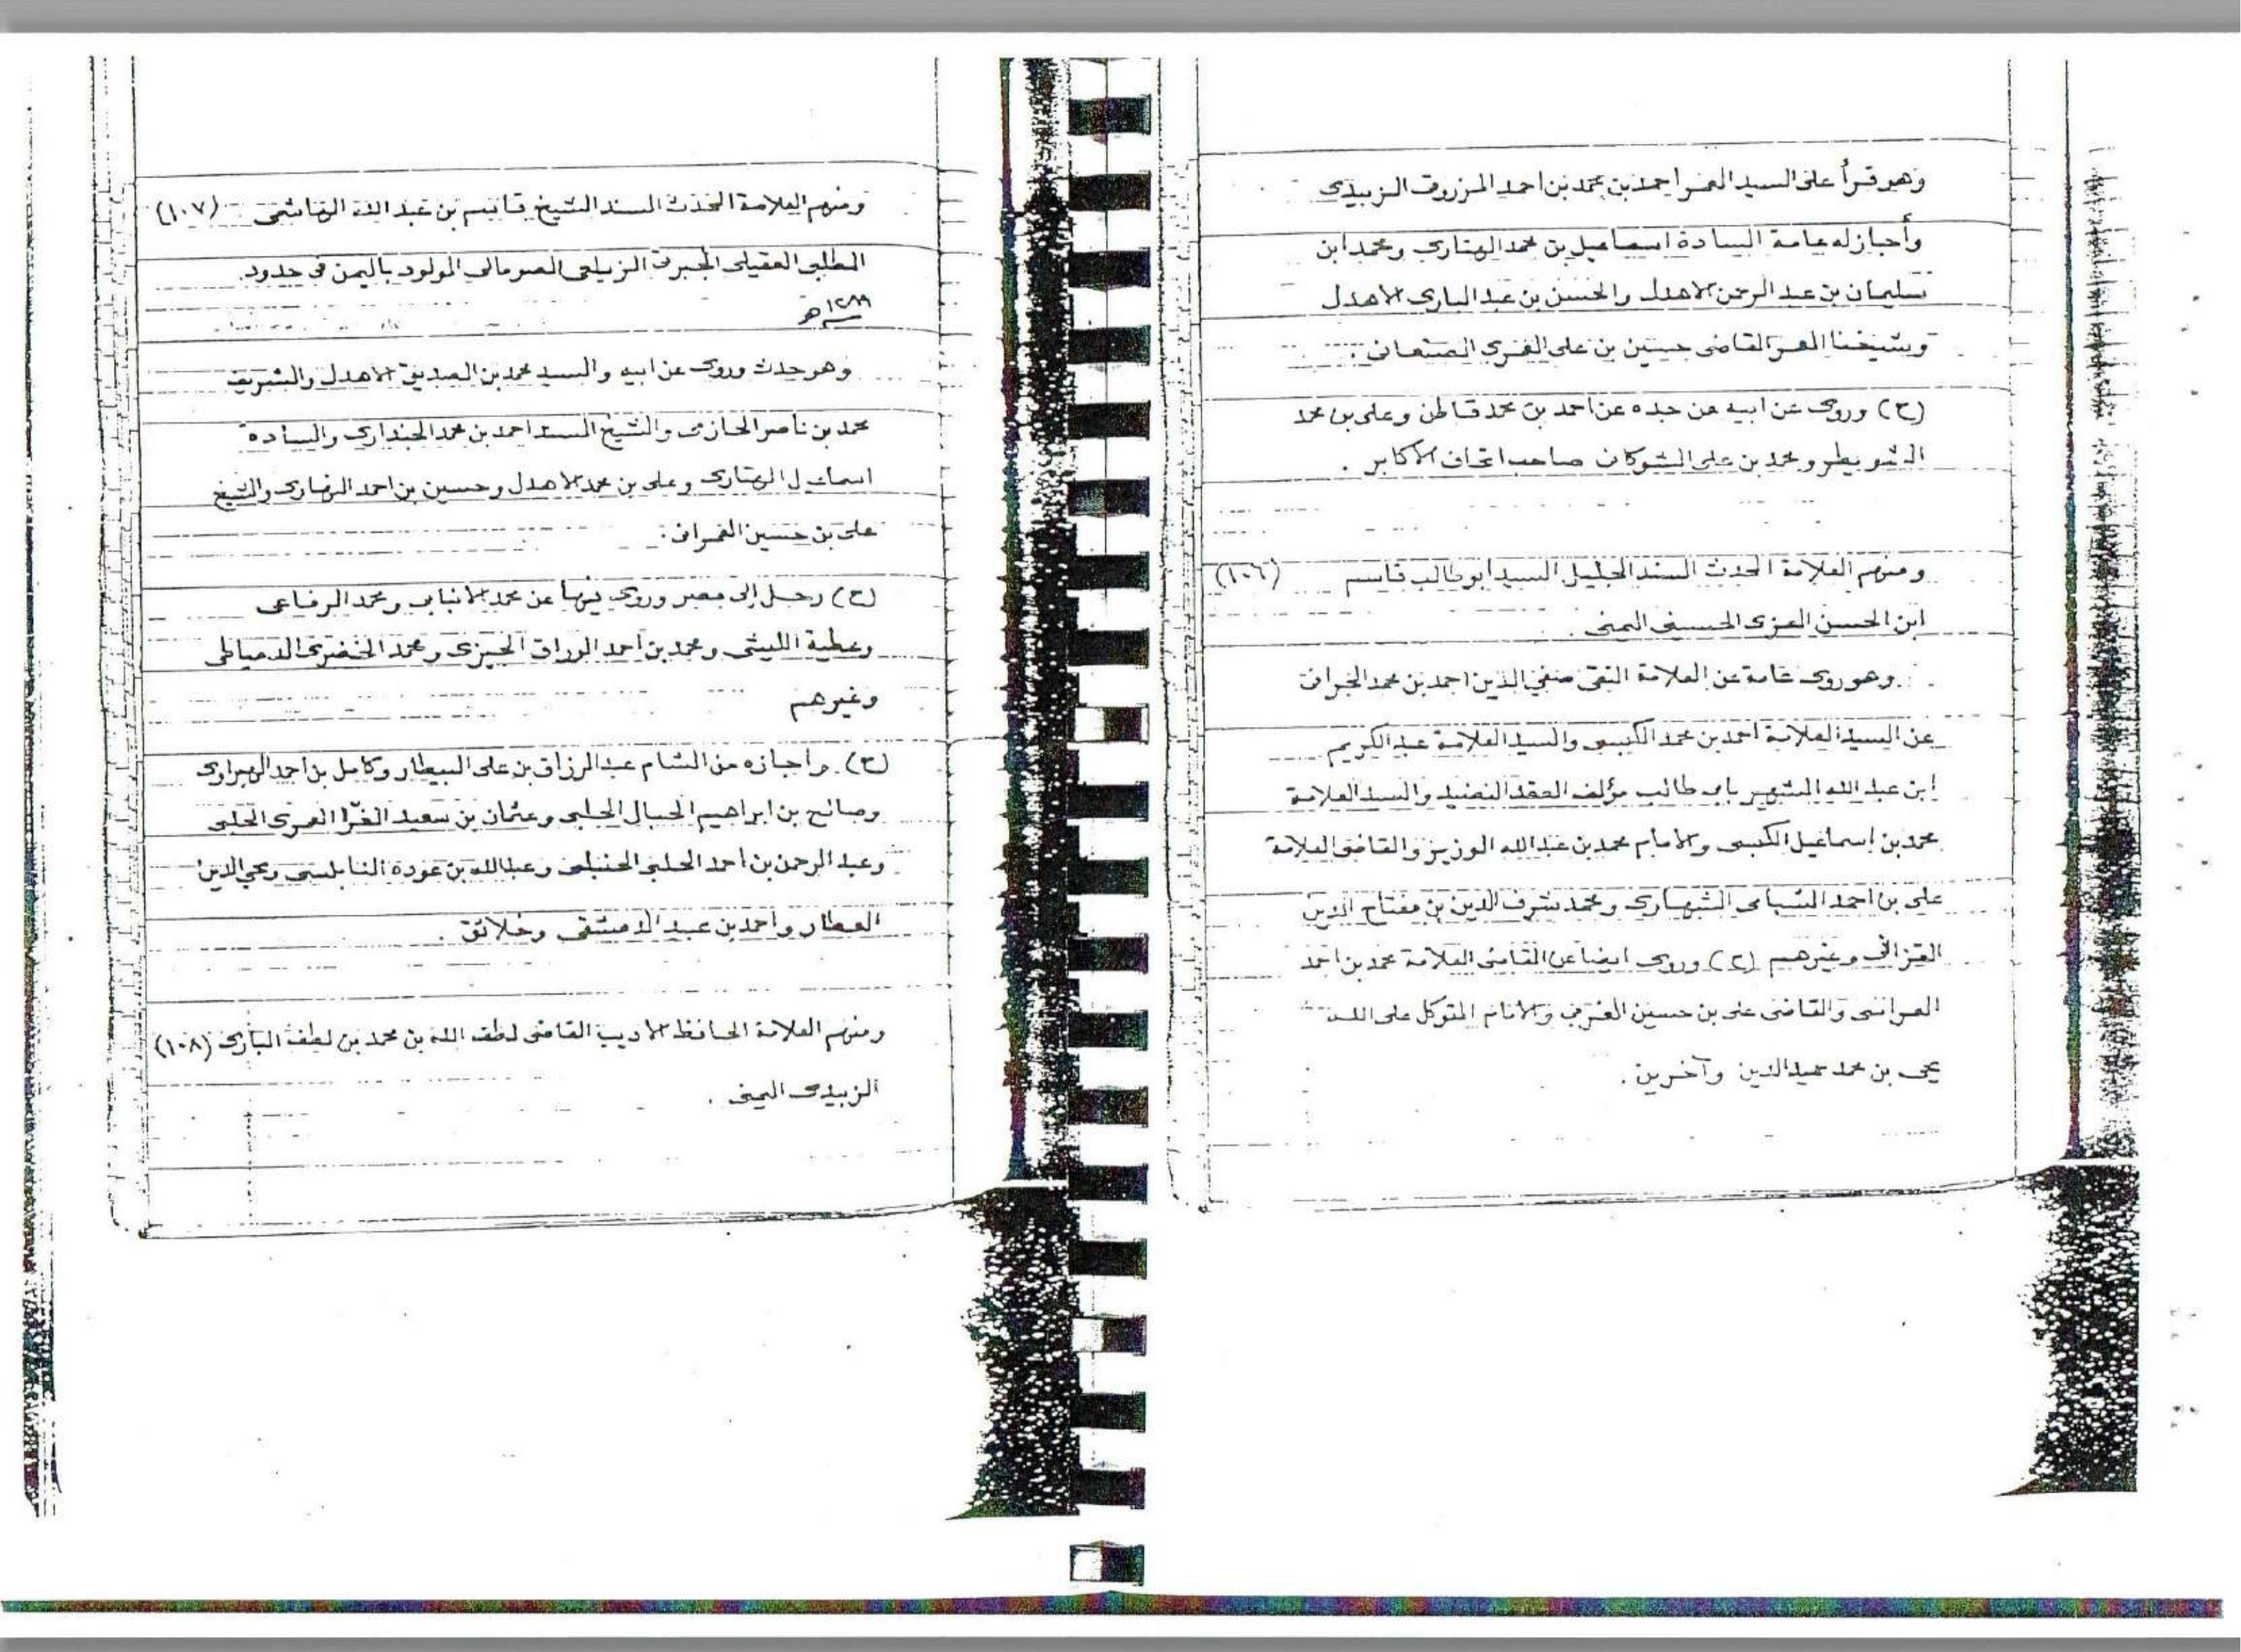 وهو قرأ على السيد المعمر احمد بن محمد بن احمد المزروق الزبيدى
وأجاز له عامة السادة اسماعيل بن محمد الهتارى ومحمد ابن
سليمان بن عبد الرحمن الاهدل والحسن بن عبد البارى الاهدل
وشيخنا المعمر القاضى حسين بن على العمرى الصنعانى .
(ح) وروى عن ابيه عن جده عن احمد بن محمد قاطن وعلى بن محمد
الشويطر ومحمد بن على الشوكانى صاحب اتحاف الأكابر .
ومنهم العلامة المحدث المسند الجليل السيد ابو طالب قاسم (١٠٦)
ابن الحسن العزى الحسينى اليمنى .
وهو روى عامة عن العلامة التقى صفي الدين احمد بن محمد الجرافى
عن السيد العلامة احمد بن محمد الكبسى والسيد العلامة عبد الكريم
ابن عبد الله الشهير بابى طالب مؤلف العقد النضيد والسيد العلامة
محمد بن إسماعيل الكبسى والأمام محمد بن عبد الله الوزير والقاضى العلامة
على بن احمد الشهارى ومحمد شرف الدين بن مفتاح الدين
القزانى وغيرهم (ح) وروى ايضا عن القاضى العلامة محمد بن احمد
العراسى والقاضى على بن حسين المغربى والامام المتوكل على الله
يحى بن محمد حميد الدين وآخرين .
ومنهم العلامة المحدث المسند الشيخ قاسم بن عبد الله الهاشمى (١٠٧)
المطلبى العقيلى الجبرتى الزيلعى الصومالى المولود باليمن فى حدود
١٢٨٩هـ
وهو حدث وروى عن ابيه والسيد محمد بن الصديق الاهدل والشريف
محمد بن ناصر الحازمى والشيخ المسند احمد بن محمد الجندارى والسادة
اسماعيل الهتارى وعلى بن محمد الاهدل وحسين بن احمد الرضارى والشيخ
على بن حسين العمرانى .
(ح) رحل إلى مصر وروى فيها عن محمد الانبابى ومحمد الرفاعى
وعطية الليثى ومحمد بن احمد الوراق الجيزى ومحمد الخضرى الدمياطى
وغيرهم
(ح) واجازه من الشام عبد الرزاق بن على البيطار وكامل بن احمد الهبراوى
وصالح بن ابراهيم الحبال الحلبى وعثمان بن سعيد الغزا العمرى الحلبى
وعبد الرحمن بن احمد الحلبى الحنبلى وعبد الله بن عودة النابلسى ومحي الدين
العطار واحمد بن عبيد الدمشقى وخلائق .
ومنهم العلامة الحافظ الاديب القاضى لطف الله بن محمد بن لطف البارى (١٠٨)
الزبيدى اليمنى .